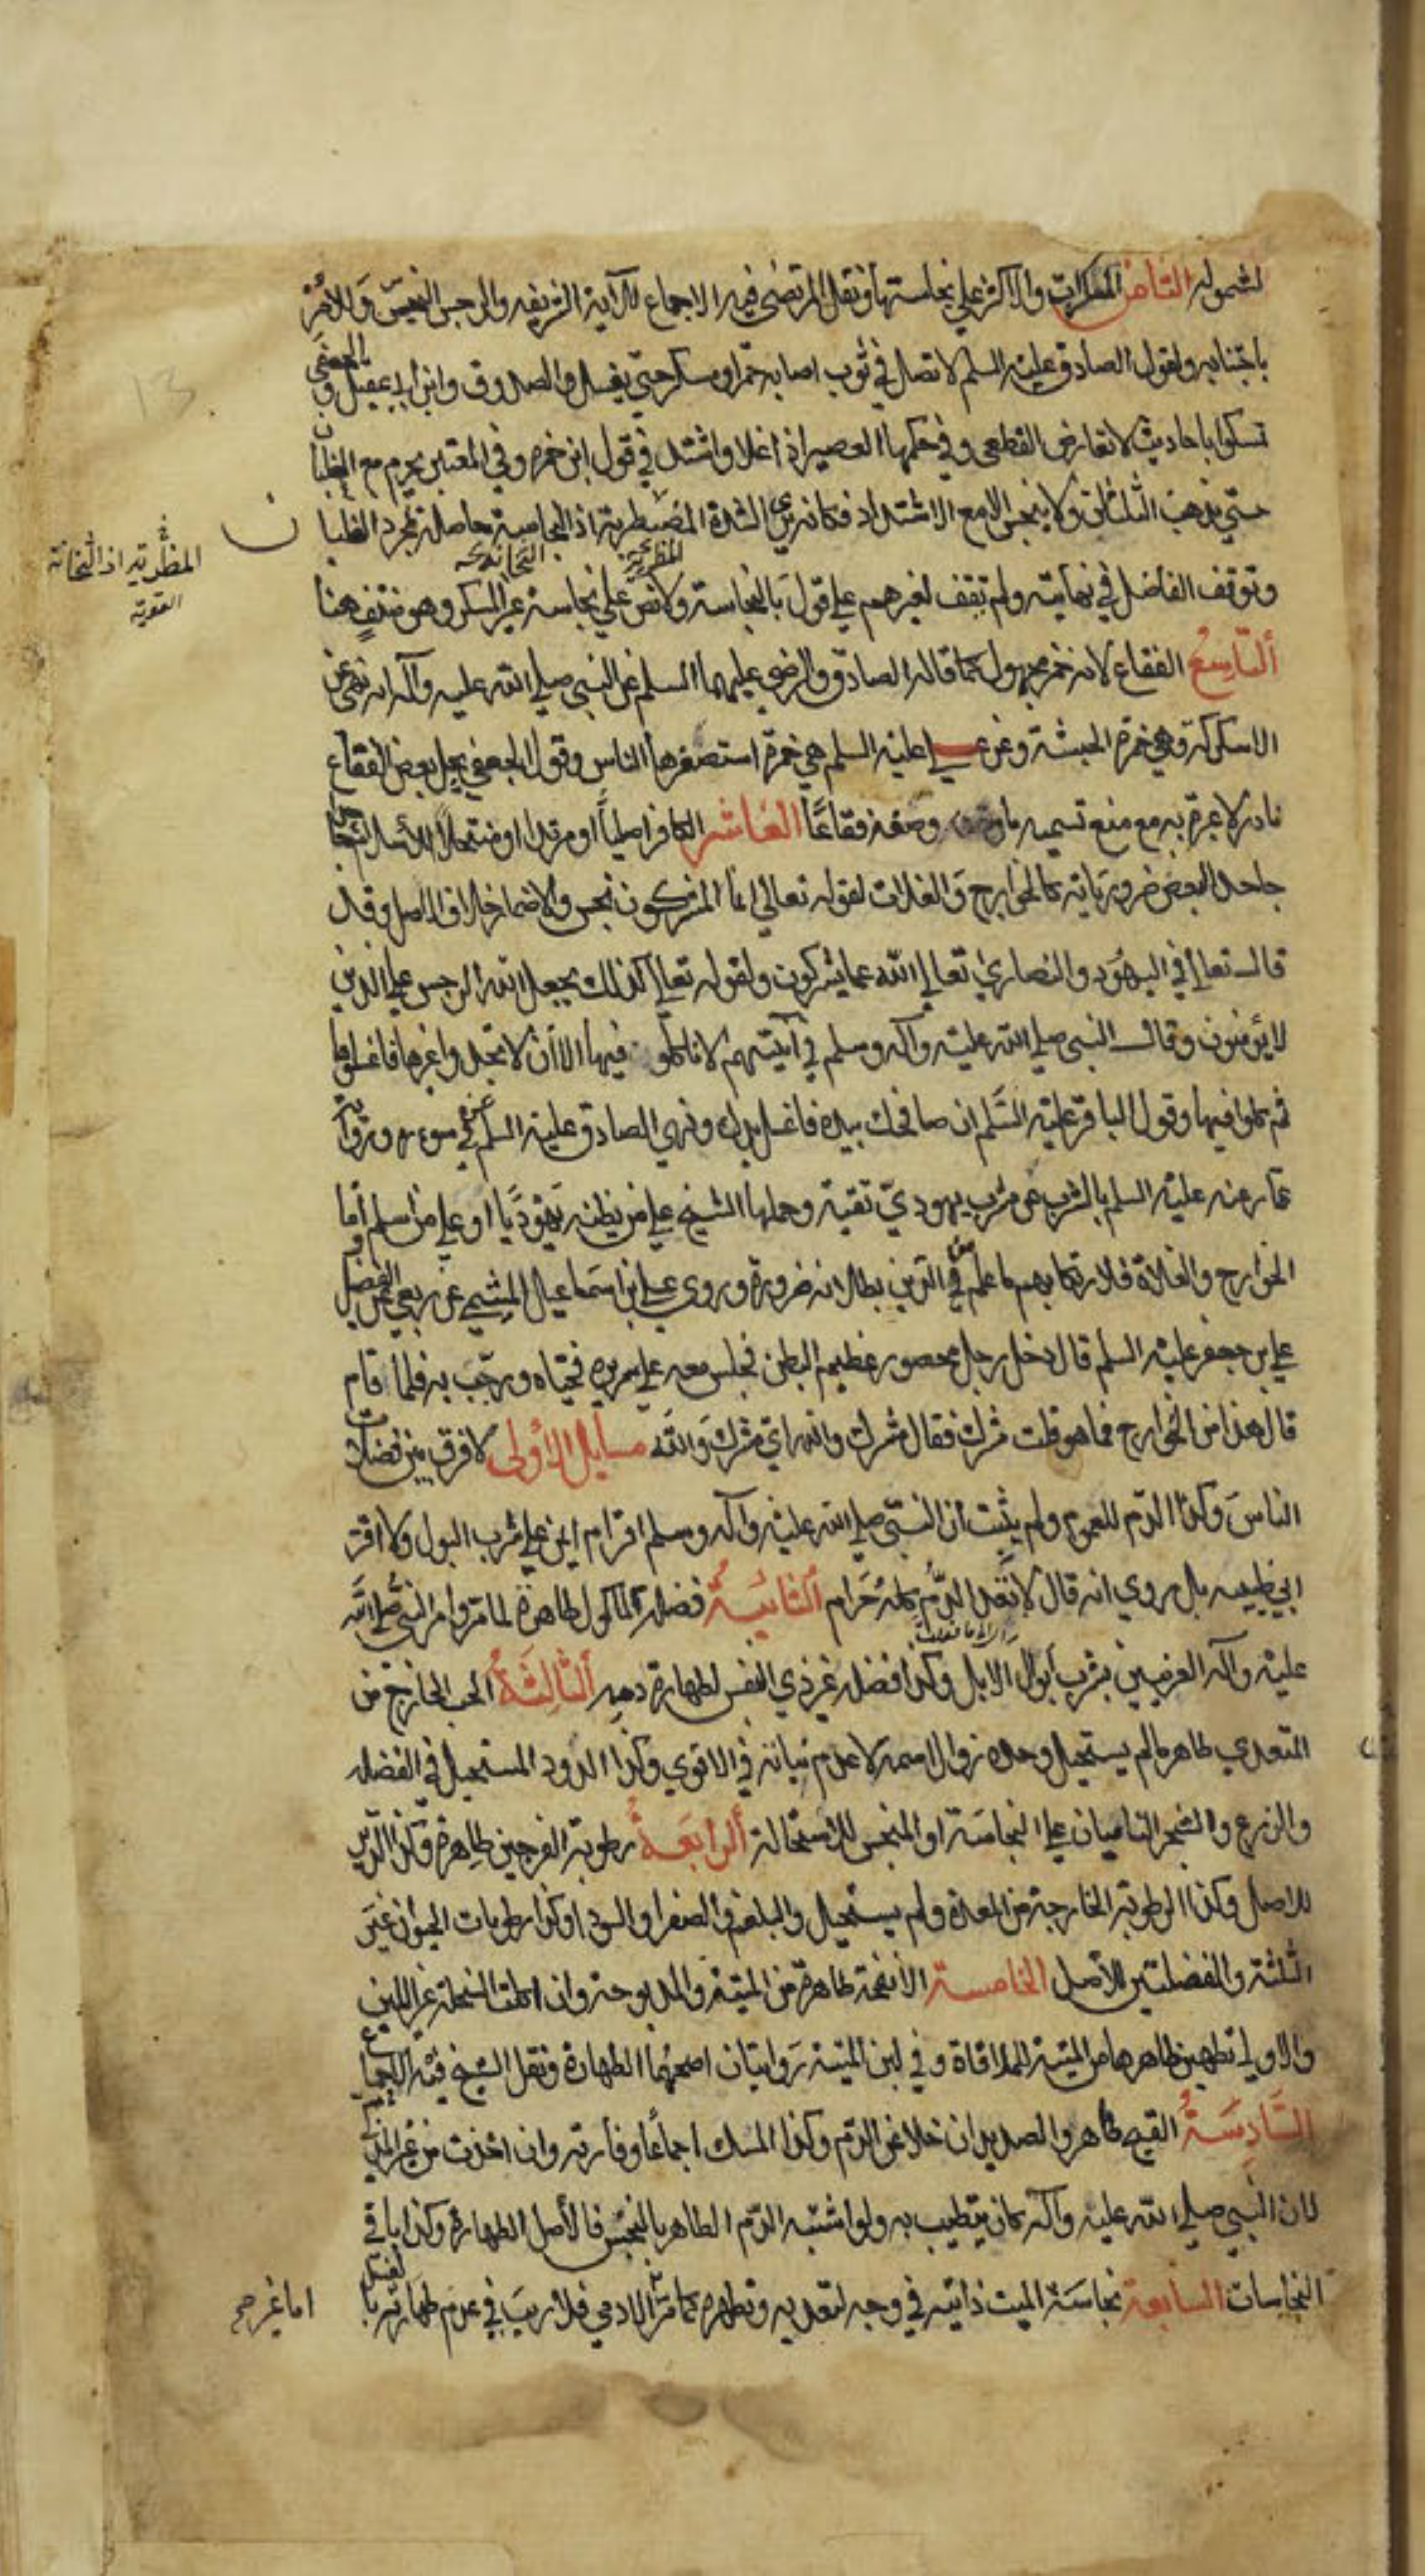 لشموله الثامن المسكرات والاكثر علي نجاستها ونقل المرتضي فيه الاجماع للآية الشريفه والرجس النجس وللامر
باجتنابه ولقول الصادق عليه السلم لا تصل في ثوب اصابه خمر او مسكر حتي يغسل والصدوق وابن ابي عقيل و الجعفي
تمسكوا باحاديث لا تعارض القطعي وفي حكمها العصير اذا غلا واشتد في قول ابن حمزه وفي المعتبر يحرم مع الغليان
حتي يذهب الثلثان ولا ينجس الا مع الاشتداد فكانه يري الشدة المضطربة اذ النجاسة حاصله بمجرد الغليان
وتوقف الفاضل في نهايته ولم نقف لغيرهم علي قول بالنجاسة ولا نص علي نجاسة غير المسكر وهو منتف هنا
التاسع الفقاع لانه خمر مجهول كما قاله الصادق والرضي عليهما السلم عن النبي صلي الله عليه وآله انه نهي عن
الاسكركة وهي خمرة الحبشة وعن عليه السلم هي خمرة استصغرها الناس وقول الجعفي بحل بعض الفقاع
نادر لا عبرة به مع منع تسميه ما وصفه فقاعا العاشر الكافر اصليا او مرتدا او منتحلا للاسلام
جاحدا لبعض ضرورياته كالخوارج والغلات لقوله تعالي انما المشركون نجس والاضمار خلاف الاصل وقد
قال تعالي في اليهود والنصاري تعالي الله عما يشركون ولقوله تعالي كذلك يجعل الله الرجس علي الذين
لا يؤمنون وقال النبي صلي الله عليه وآله وسلم في آنيتهم لا تاكلو فيها الا ان لا تجدوا غيرها فاغسلوها
ثم كلوا فيها وقول الباقر عليه السلم ان صافحك بيده فاغسل يدك ونهي الصادق عليه السلم عن سؤره ورواية
عمار عنه عليه السلم بالشرب من مشرب يهودي تقية وحملها الشيخ علي من يظنه يهوديا او علي من اسلم اما
الخوارج والغلاة فلارتكابهم ما علم من الدين بطلانه ضرورة وروي علي بن اسماعيل الميثمي عن ربعي عن الفضيل
علي بن جعفر عليه السلم قال دخل رجل محصور عظيم البطن فجلس معه علي سريره فحياه ورحب به فلما قام
قال هذا من الخوارج فما هو قلت مشرك فقال مشرك والله اي مشرك والله مسايل الاولي لا فرق بين فضلات
الناس وكذا الدم للعموم ولم يثبت ان النبي صلي الله عليه وآله وسلم اقر ام ايمن علي شرب البول ولا اقر
ابي طيبه بل روي انه قال لا تعد الدم كله حرام الثانية فضلة المأكول طاهرة لما مر وامر النبي صلي الله
عليه وآله العرنيين بشرب أبوال الابل وكذا فضله غير ذي النفس لطهارة دمه الثالثة الحب الخارج من
المتغدي طاهر ما لم يستحيل وحده زوال اسمه لا عدم نباته في الاقوي وكذا الدود المستحيل في الفضله
والزرع والشجر الناميان علي النجاسة او المنجس للاستحالة الرابعة رطوبة الفرجين طاهرة وكذا الدبر
للاصل وكذا الرطوبة الخارجة من المعدة ولم يستحيل والبلغم والصفرا والسودا وكذا رطوبات الحيوان غير
الثلثة والفضلتين للاصل الخامسة الانفحة طاهرة من الميتة والمذبوحة وان اكلت السخلة غير اللبن
والاولي تطهير ظاهرها من الميتة للملاقاة وفي لبن الميتة روايتان اصحهما الطهارة ونقل الشيخ فيه الاجماع
السادسة القيح طاهر والصديد ان خلا عن الدم وكذا المسك اجماعا وفأرته وان اخذت من غير المذكي
لان النبي صلي الله عليه وآله كان يتطيب به ولو اشتبه الدم الطاهر بالنجس فالاصل الطهارة وكذا باقي
النجاسات السابعة نجاسة الميت ذاتيه في وجه لتعديه وتطهره كما مر الادمي فلا ريب في عدم طهارته بالغسل
المطربة
المطربة اذ الثخانة
القوية
اما غير صح
13